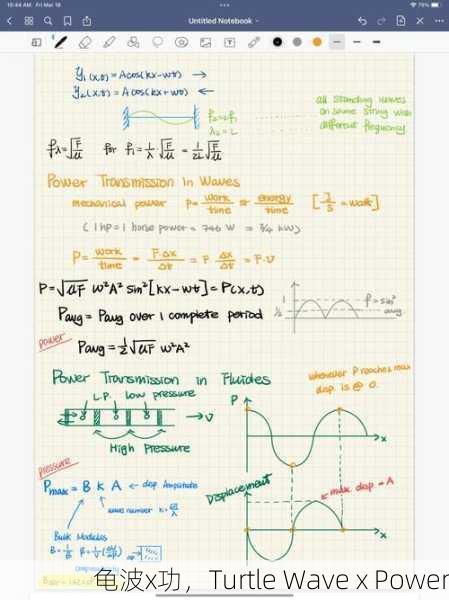 10:44 AM Fri Mar 18
79%
Untitled Notebook
y₁(x,t) = A cos(kx-wt) →
y₂(x,t) = A cos(kx+wt) ←
f₂=2f₁
λ₂ = L
all standing waves
on same string with
different frequency
fλ = √F/μ for f₁ = 1/λ · √F/μ = 1/2L √F/μ
Power Transmission in Waves
mechanical power P = work/time = energy/time [J/s = watt]
(1 HP = 1 horse power = 746 W = 3/4 kW)
P = work/time = FΔx/Δt = F · Δx/Δt = F·v
P = √μF w²A² sin²[kx-wt] = P(x,t)
Pavg = Pavg over 1 complete period
1
1/2
f = sin²
avg.
power
Pavg = 1/2 √μF w²A²
Power Transmission in Fluides
whenever P reaches max
disp. is @ 0.
L.P. low pressure
→ v
High Pressure
P
x
pressure
Pmax = B k A ← disp. Amplitude
wave number k = 2π/λ
Displacement
max disp = A
x
Bulk Modules
龟波x功，Turtle Wave x Power